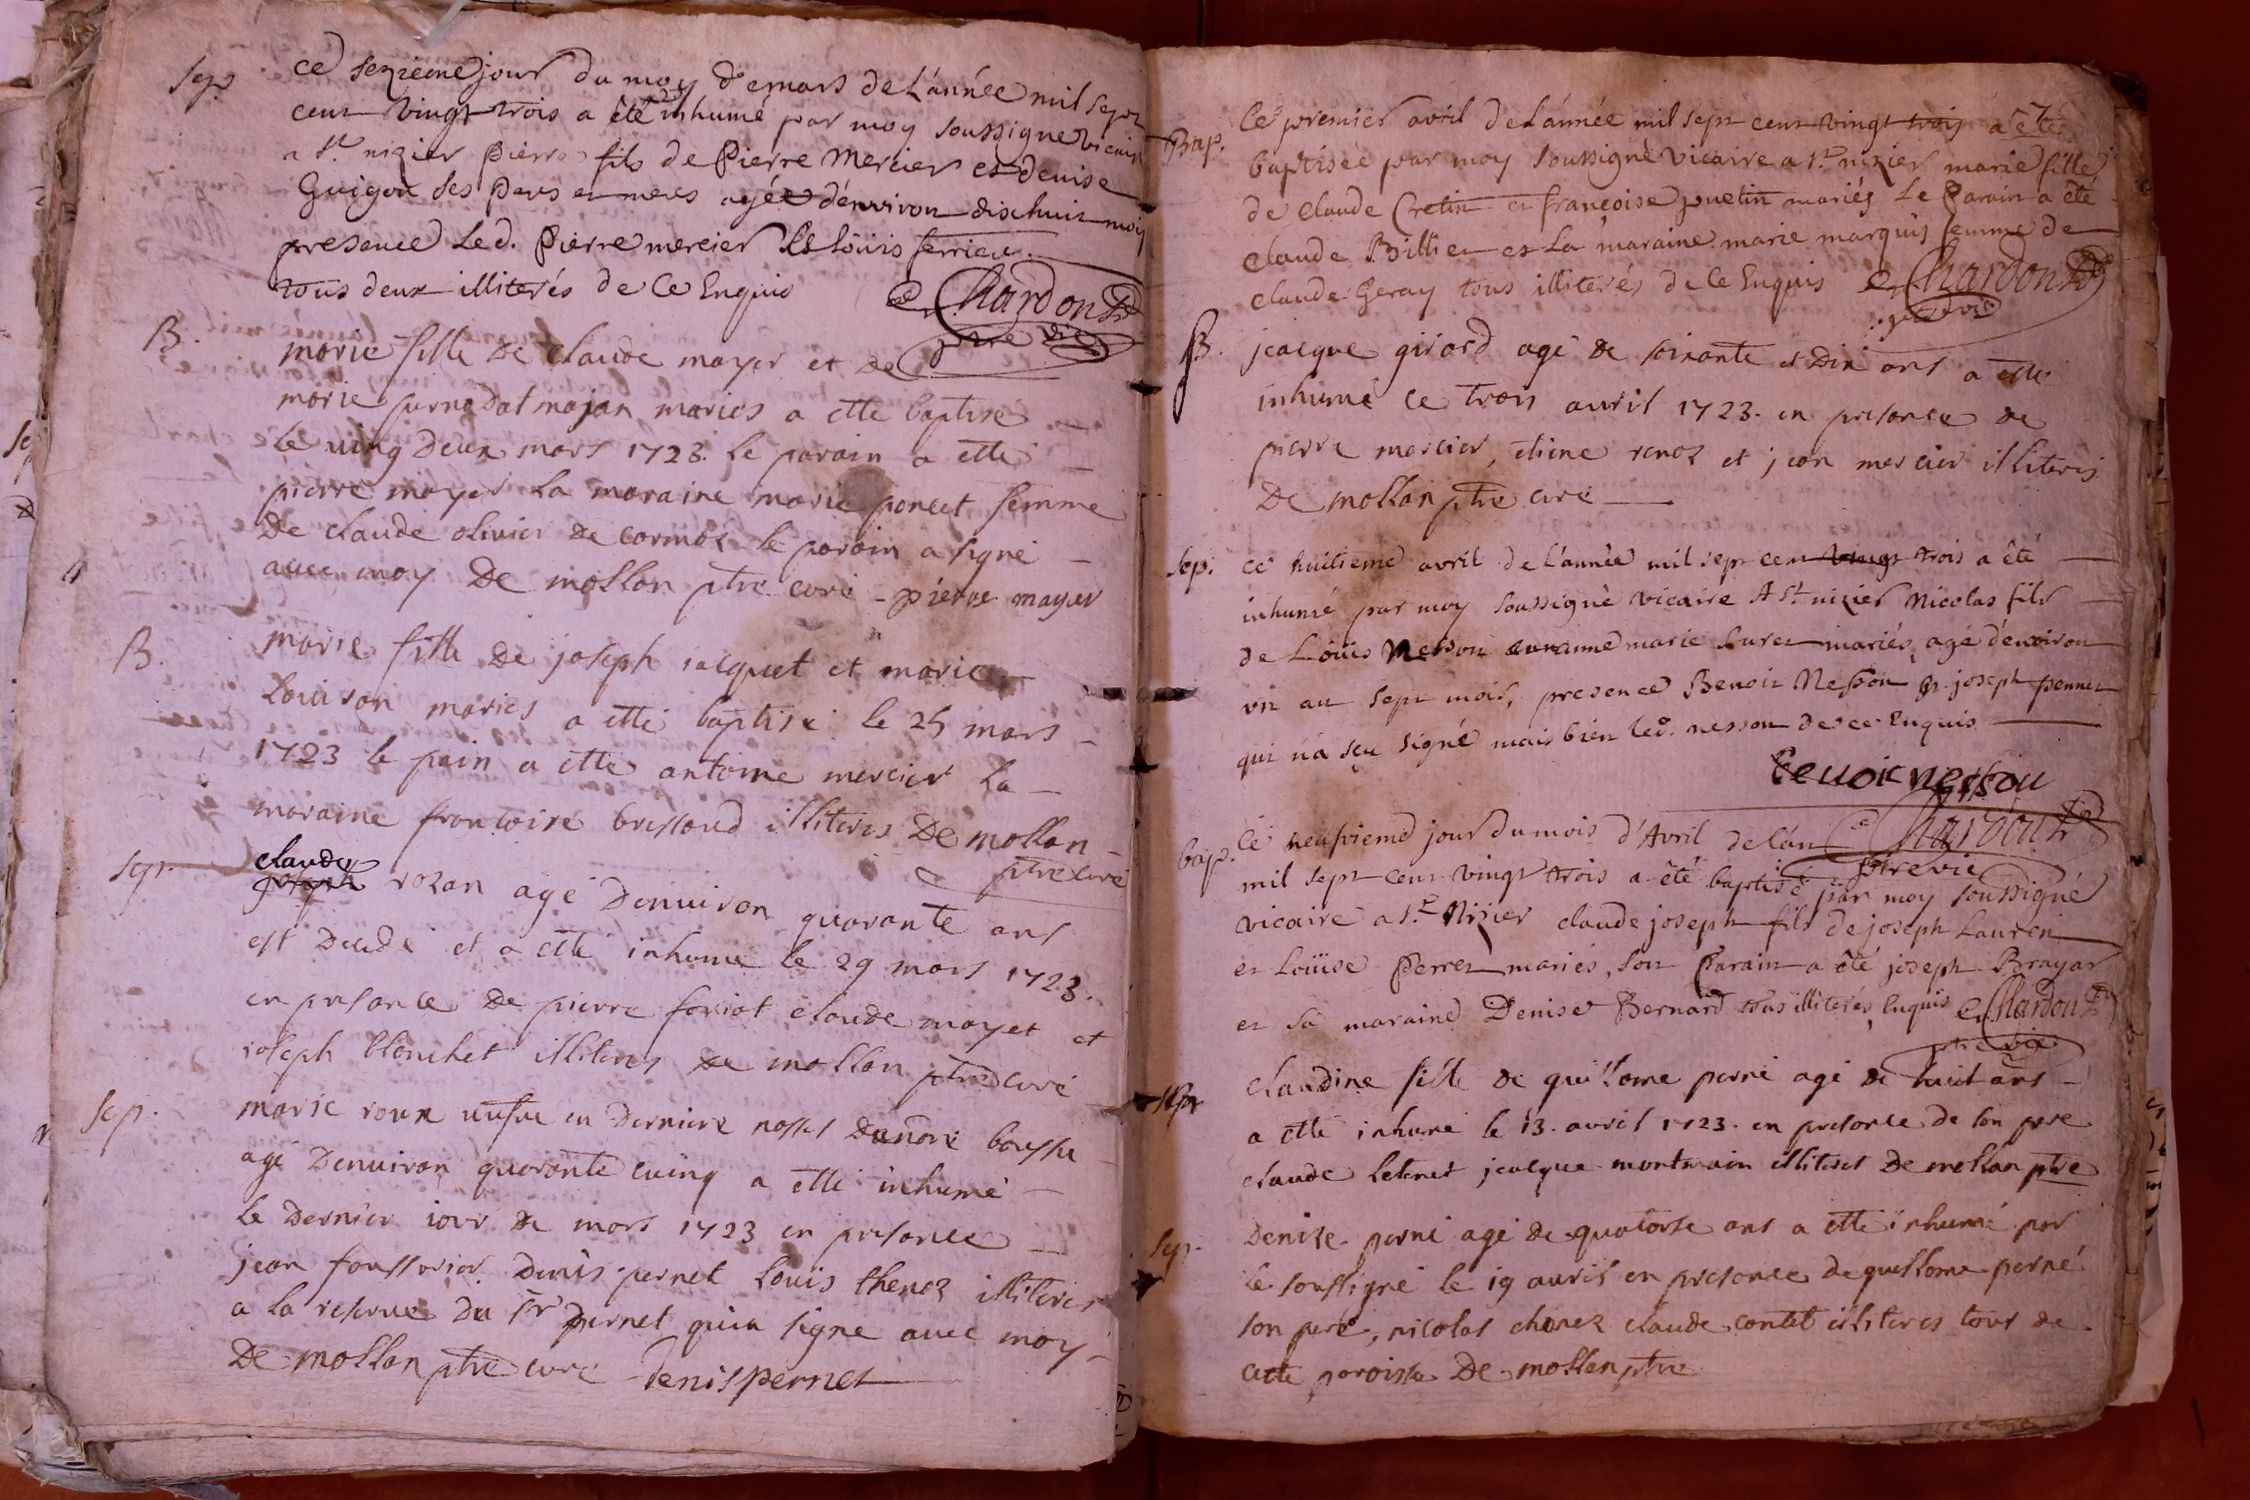 Sep. ce seizieme jour du moy de mars de L'année mil sept
cent vingt trois a été inhumé par moy soussigné vicaire
a St. nizier Pierre fils de Pierre Mercier et denise
Guigon ses peres et meres agée d'environ dixhuit moy
presence led. Pierre mercier et Loüis ferrieu
tous deux illiterés de ce Enquis C Chardon
ptre vic
B. marie fille de Claude mayer et de
marie maries a etté baptise
Le ving deux mars 1723. le parain a etté
pierre mayer La maraine marie poncet femme
De claude olivier de cormoz le parain a signé
avec moy De mollan ptre curé - pierre mayer
B. marie fille de joseph iacquet et marie
Louison maries a etté baptisé le 25 mars
1723 le pain a etté antoine mercier La
maraine francoise brossaud illiteres De mollan
ptre curé
Sep. claude
joseph rozan agé Denuiron quarante ans
est Decede et a etté inhumé le 29 mars 1723.
en presance de pierre foriat claude mayet et
ioseph blanchet illiteres de mollan ptre curé
Sep. marie roux uefue en Derniere nosses Dandre
agé Denuiron quarante cuinq a etté inhumé
Le Dernier iour de mars 1723 en presance
jean Denis pernet Louis thenoz illiteres
a la reserue du sr pernet qui a signe auec moy
De mollan ptre cure Denis pernet
Bap. Ce premier avril de L'année mil sept cent vingt trois a été
baptisée par moy soussigné vicaire a St. nizier marie fille
de Claude Cretin et françoise puetin mariés Le Parain a été
claude Billiet et La maraine marie marquis femme de
claude Geray tous illiterés de ce Enquis C Chardon
ptre vic
B. jcacque girard agé de soixante et Dix ans a etté
inhumé ce trois auril 1723. en presance de
pierre mercier, etiene renoz et jean mercier illiteres
De mollan ptre curé
Sep. ce huitieme avril de L'année mil sept cent vingt trois a été
inhumé par moy soussigné vicaire A St. nizier Nicolas fils
de Loüis Nesson et anne marie buret mariés, agé d'environ
un an sept mois, presence Benoit Nesson et joseph pennet
qui n'a sçu signé mais bien led. nesson de ce Enquis
Benoit nesson
Bap. Ce neufvieme jour du mois d'Avril de L'an C Chardon
ptre vic
mil sept cent vingt trois a été baptisé par moy soussigné
vicaire a St. Nizier claude joseph fils de joseph Laurein
et Loüise Perret mariés, son Parain a été joseph Brayar
et sa maraine Denise Bernard tous illiterés, Enquis C Chardon
ptre vic
Sep. Claudine fille de guillome perné agé de huit ans
a etté inhumé le 13. auril 1723. en presance de son pere
claude jcacque montrain illiteres De mollan ptre
Sep. Denize perné agé de quatorse ans a etté inhumé par
Le soussigné le 19 auril en presance de guillome perné
son pere, nicolas chanez claude contet illiteres tous de
cette paroisse De mollan ptre